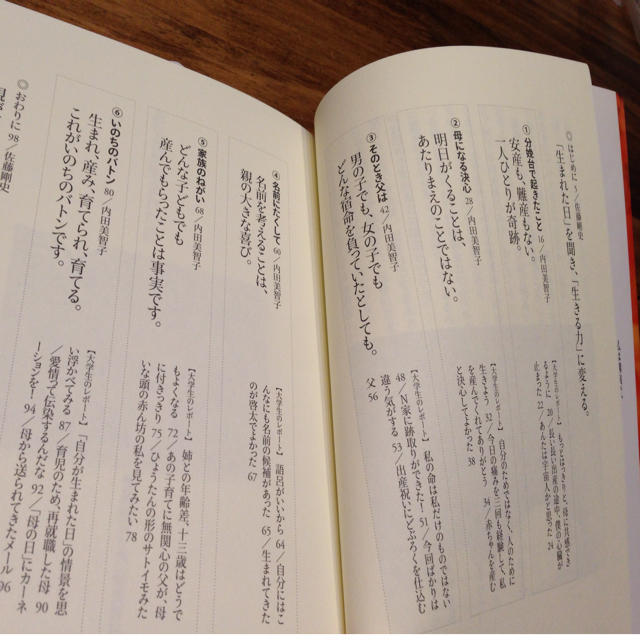 ◎はじめに 5／佐藤剛史
「生まれた日」を聞き、「生きる力」に変える。
①分娩台で起きたこと 16／内田美智子
安産も、難産もない。
一人ひとりが奇跡。
【大学生のレポート】 もっとはっきりと、母に共感でき
るように 20／長〜長い出産の途中、僕の心臓が
止まった 22／あんたは宇宙人かと思った 24
②母になる決心 28／内田美智子
明日がくることは、
あたりまえのことではない。
【大学生のレポート】 自分のためではなく、人のために
生きよう 33／今日の痛みを三回も経験して、私
を産んでくれてありがとう 34／赤ちゃんを産む
と決心してよかった 38
③そのとき父は 42／内田美智子
男の子でも、女の子でも
どんな宿命を負っていたとしても。
【大学生のレポート】 私の命は私だけのものではない
48／N家に跡取りができた！ 51／今回ばかりは
違う気がする 53／出産祝いにどぶろくを仕込む
父 56
④名前にたくして 60／内田美智子
名前を考えることは、
親の大きな喜び。
【大学生のレポート】 語呂がいいから 64／自分にはこ
んなにも名前の候補があった 65／生まれてきた
のが啓太でよかった 67
⑤家族のねがい 68／内田美智子
どんな子どもでも
産んでもらったことは事実です。
【大学生のレポート】 姉との年齢差、十三歳はどうで
もよくなる 72／あの子育てに無関心の父が、母
に付きっきり 75／ひょうたんの形のサトイモみた
いな頭の赤ん坊の私を見てみたい 78
⑥いのちのバトン 80／内田美智子
生まれ、産み、育てられ、育てる。
これがいのちのバトンです。
【大学生のレポート】 「自分が生まれた日」の情景を思
い浮かべてみる 87／育児のため、再就職した母 90
／愛情って伝染するんだな 92／「母の日」にカーネ
ーションを！ 94／母から送られてきたメール
96
◎おわりに 98／佐藤剛史